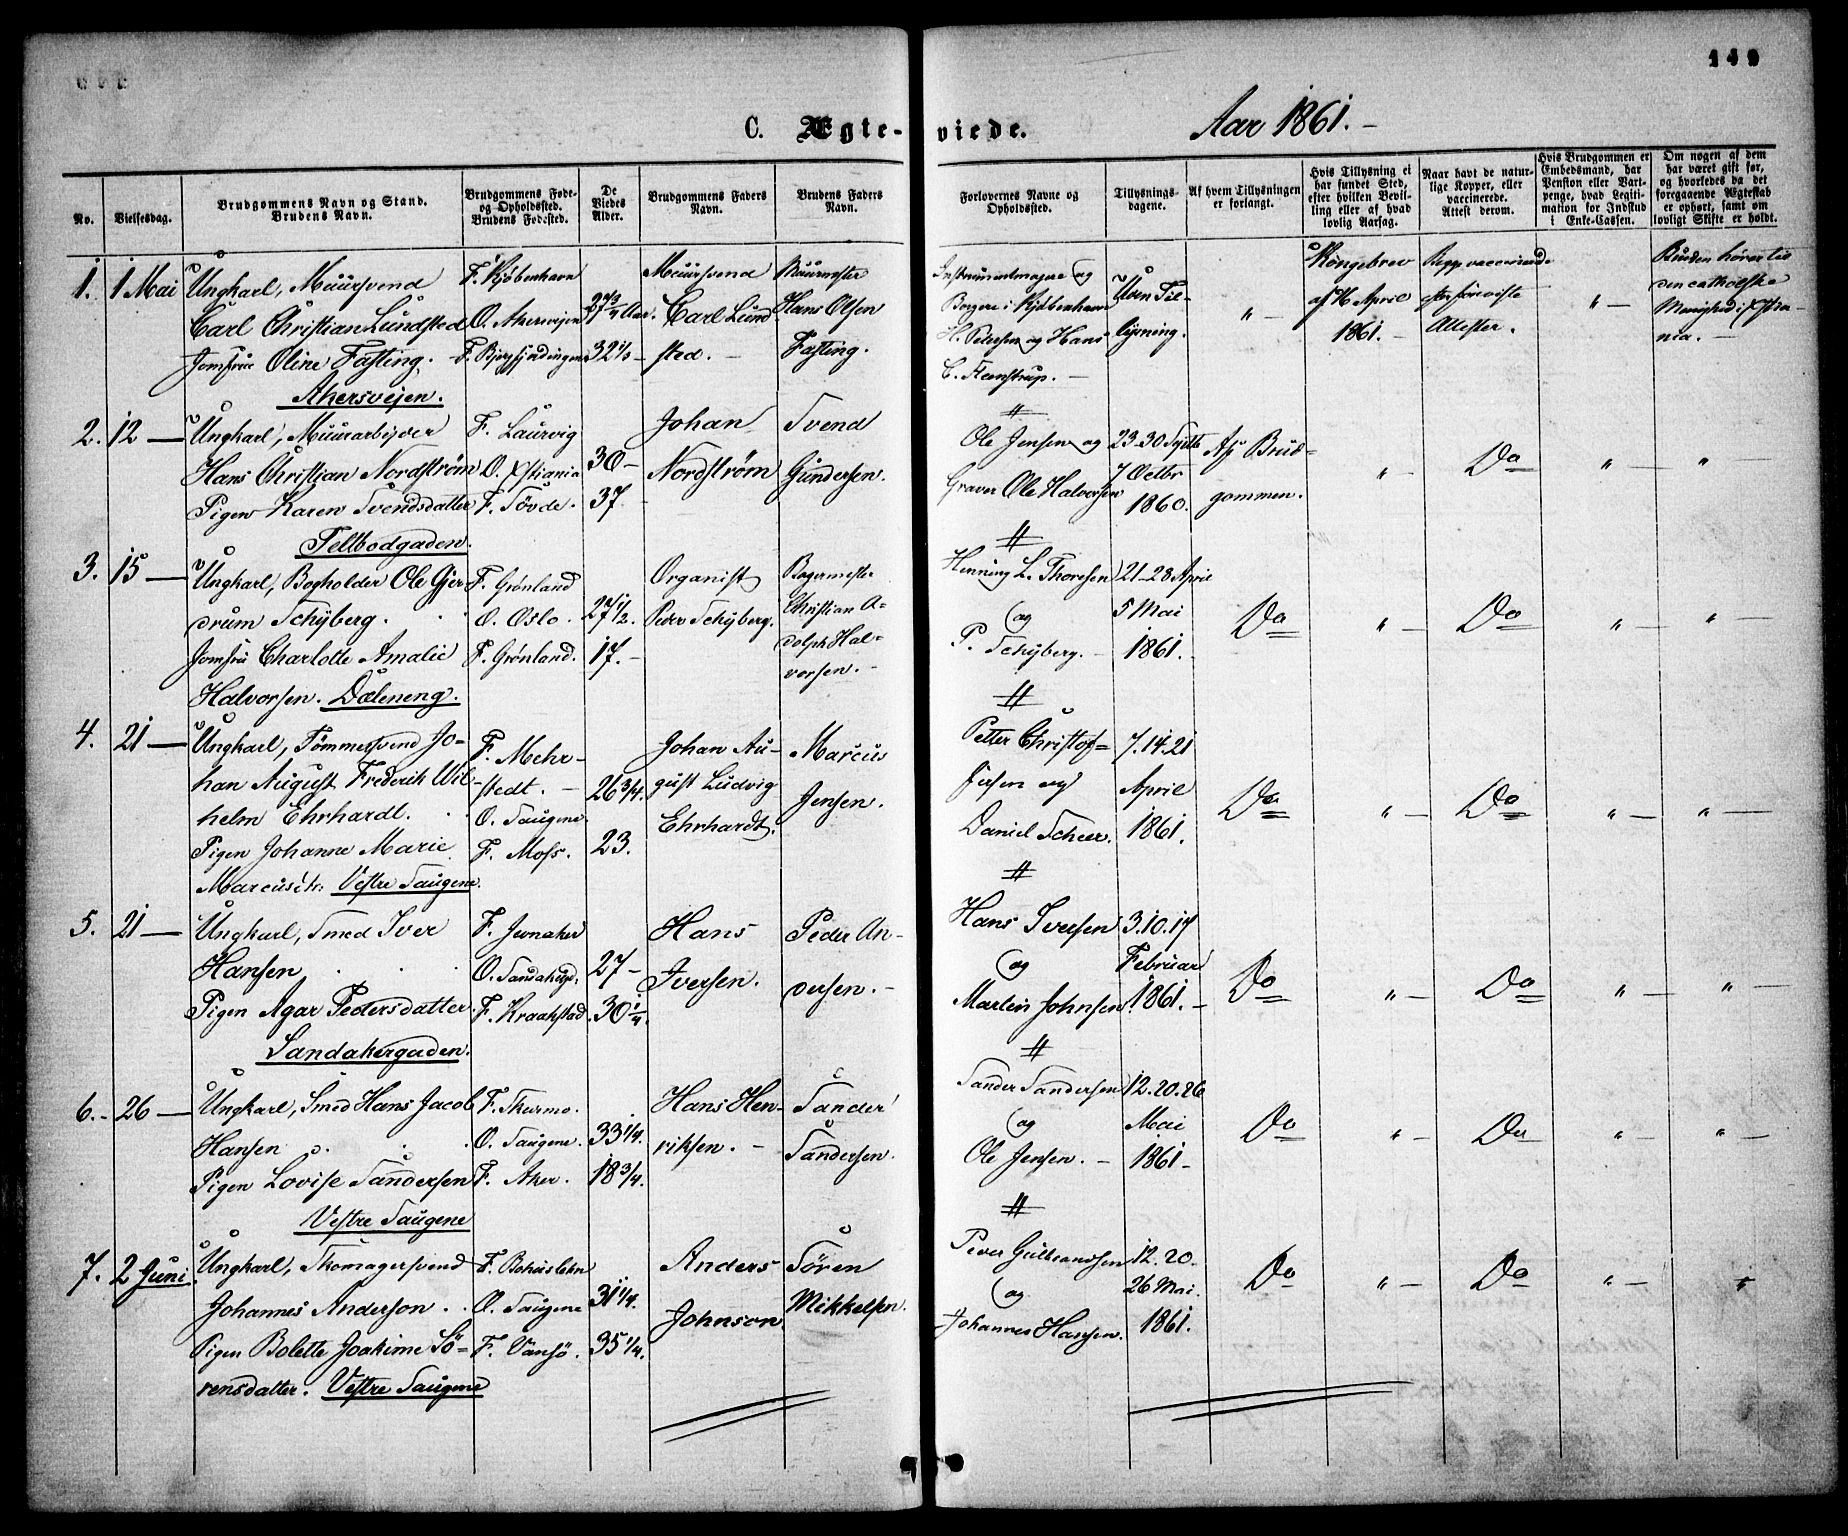 149
C. Ægte-
viede.
Aar 1861. -
No.
Vielsesdag.
Brudgommens Navn og Stand.
Brudens Navn.
Brudgommens Føde-
og Opholdssted.
Brudens Fødested.
De
Viedes
Alder.
Brudgommens Faders
Navn.
Brudens Faders
Navn.
Forlovernes Navne og
Opholdssted.
Tillysnings-
dagene.
Af hvem Tillysningen
er forlangt.
Hvis Tillysning ei
har fundet Sted,
efter hvilken Bevil-
ling eller af hvad
lovlig Aarsag.
Naar havt de natur-
lige Kopper, eller
vaccinerede.
Attest derom.
Hvis Brudgommen er
Embedsmand, har
Pension eller Vart-
penge, hvad Legiti-
mation for Indskud
i Enke-Cassen.
Om nogen af dem
har været gift før,
og hvorledes da det
foregaaende Ægteskab
er ophørt, samt om
lovligt Skifte er holdt.
1. 1 Mai
Ungkarl, Muursvend
Carl Christian Lundsted
Jomfru Oline Fasting.
Akersveien.
F. Kjøbenhavn
O. Akersveien
F.
27 3/4 Aar.
32 1/3 -
Muursvend
Carl Lund
sted. -
Muurmester
Hans Olsen
Fasting.
Instrumentmagere og
Borgere i Kjøbenhavn
H. Petersen og Hans
C. Steenstrup. -
Uden Til-
lysning.
" -
Kongebrev
af 16 April
1861. -
Begge vaccinerede
efter foreviste
Attester.
" -
Bruden hører til
den catholske
Menighed i Xstia-
nia. -
2. 12 -
Ungkarl, Muurarbeider
Hans Christian Nordstrøm
Pigen Karen Svendsdatter
Feltbodgaden.
F. Laurvig
O. Xstiania
F. Søvde.
30 -
37.
Johan
Nordstrøm
Svend
Gundersen.
Ole Jensen og
Graver Ole Halvorsen
23-30 Septb
7 Octbr
1860.
Af Brud-
gommen.
" -
Do
" -
" -
3. 15 -
Ungkarl, Bogholder Ole Gjer-
drum Schyberg.
Jomfru Charlotte Amalie
Halvorsen. Dæleneng.
F. Grønland
O. Oslo.
F. Grønland.
27 1/2.
17. -
Organist
Peder Schyberg.
Bagermester
Christian A-
dolph Hal-
vorsen. -
Henning L. Thoresen
og
P. Schyberg. -
21-28 April
5 Mai
1861. -
Do
" -
Do
" -
" -
4. 21 -
Ungkarl, Tømmersvend Jo-
han August Frederik Wil-
helm Ehrhardt.
Pigen Johanne Marie
Marcusdtr. Vestre Saugene.
F. Mehr-
stedt. -
O. Saugene.
F. Moss.
26 3/4.
23.
Johan Au-
gust Ludvig
Ehrhardt.
Marcus
Jensen.
Petter Christof-
fersen og
Daniel Scheer.
7.14.21
April
1861.
Do
" -
Do
" -
" -
5. 21 -
Ungkarl, Smed Iver
Hansen
Pigen Agar Pedersdatter.
Sandakergaden.
F. Jevnaker
O. Sandakergd.
F. Kraakstad.
27 -
30 1/4.
Hans
Iversen.
Peder An-
dersen. -
Hans Iversen
og
Martin Johnsen
3.10.17
Februar
1861. -
Do
" -
Do
" -
" -
6. - 26 -
Ungkarl, Smed Hans Jacob
Hansen
Pigen Lovise Sandersen
Vestre Saugene
F. Skurmo.
O. Saugene.
F. Aker.
33 1/4.
18 3/4.
Hans Hen-
riksen. -
Sander
Sandersen.
Sander Sandersen
og
Ole Jensen. -
12.20.26
Mai
1861 -
Do
" -
Do
" -
" -
7. 2 Juni.
Ungkarl, Skomagersvend
Johannes Anderson.
Pigen Bolette Joakime Sö-
rensdatter. Vestre Saugene
F. Bohuslehn
O. Saugene
F. Vansø.
31 1/4.
35 1/4.
Anders
Johnson.
Sören
Mikkelsen.
Peder Gulbrandsen
og
Johannes Hansen.
12.20.
26 Mai.
1861.
Do
" -
Do
" -
"